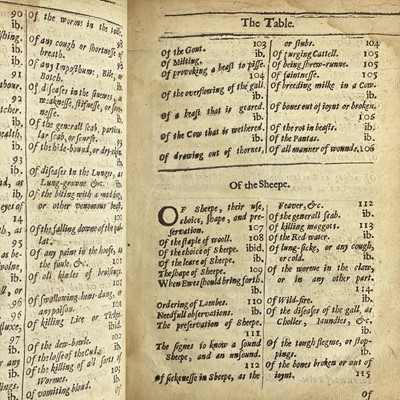 90
ib.
ib.
91
ib.
92
ib.
ib.
93
ib.
94
ib.
95
ib.
ib.
ib.
ib.
ib.
ib.
ib.
Of the worms in the
Of any cough or shortnesse of
breath.
Of any Impostbume, Bile, or
Botch.
Of diseases in the sinewes, as
weaknesse, stifnesse, or sore-
nesse.
Of the generall scab, particu-
lar scab, or scurfe.
Of the hide-bound, or dry-skin.
Of diseases in the Lunges, as
Lung-growne &c.
Of the biting with a mad-dog,
or other venomous beast.
Of the falling downe of the pa-
lat.
Of any paine in the hoofe, as
the founk, &c.
Of all kindes of bruisings.
Of swallowing hens-dung, or
any poison.
Of killing Lice or Tickes.
Of the dew-bowle.
Of the losse of the Cud.
Of the killing of all sorts of
Wormes.
Of vomiting blood.
The Table.
Of the Gout. 103
Of Milting. ib.
Of provoking a beast to pisse.
104
Of the overflowing of the gall.
ib.
Of a beast that is goared.
ib.
Of the Cow that is wethered.
ib.
Of drawing out of thornes,
or stubs. 104
Of purging Cattell. ib.
Of being shrew-runne. 105
Of faintnesse. 105
Of breeding milke in a Cow.
ib.
Of bones out of joynt or broken.
106
Of the rot in beasts. ib.
Of the Pantas. ib.
Of all manner of wounds. 106
Of the Sheepe.
OF Sheepe, their use,
choice, shape, and pre-
servation. 107
Of the staple of wooll. 108
Of the choice of Sheepe. ibid.
Of the leare of Sheepe. ib.
The shape of Sheepe. 109
When Ewes should bring forth.
ib.
Ordering of Lambes. 110
Needfull observations. ib.
The preservation of Sheepe.
111
The signes to know a sound
Sheepe, and an unsound.
112
Of sicknesse in Sheepe, as the
Feaver, &c. 112
Of the generall scab. ib.
Of killing maggots. 113
Of the Red water. ib.
Of lung-sicke, or any cough,
or cold. ib.
Of the worme in the clawe,
or in any other part.
114
Of Wild-fire. ib.
Of the diseases of the gall, as
Choller, Iaundies, &c.
ib.
Of the tough flegme, or stop-
pings. ib.
Of the bones broken or out of
ioynt. 115
Of